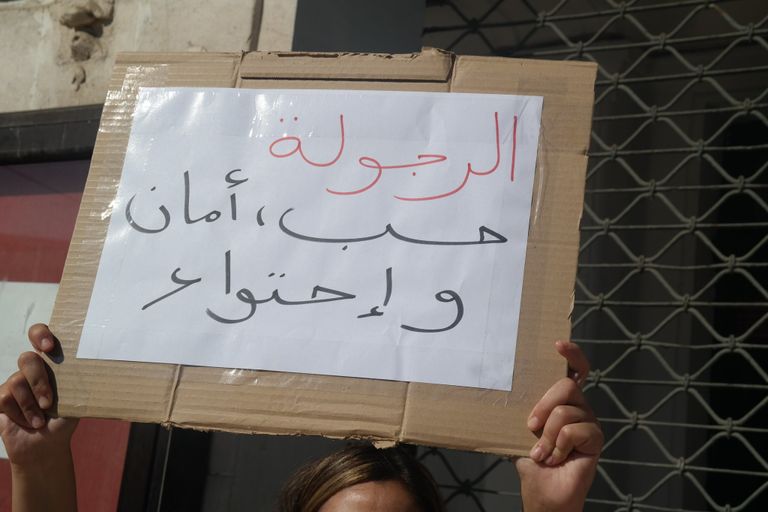 الرجولة
حب، أمان
و إحتواء